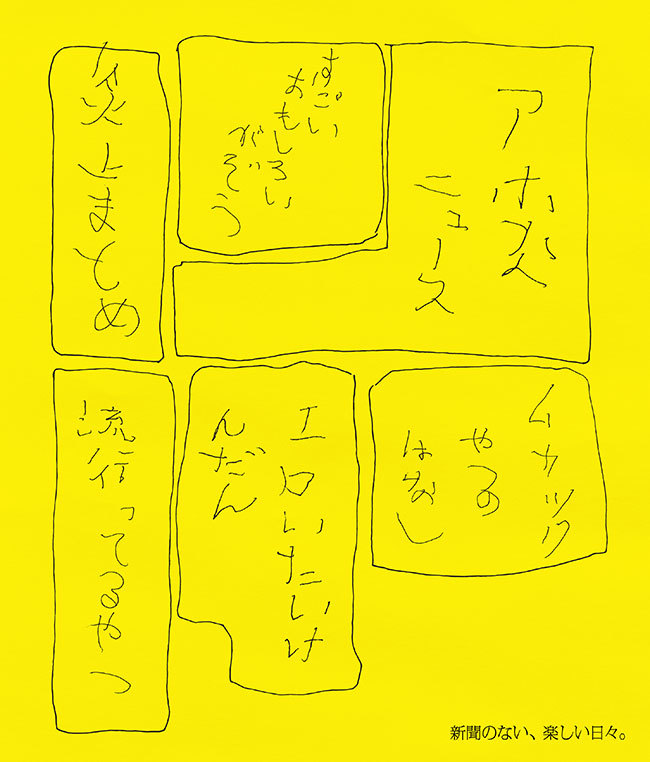 アホな
ニュース
すごい
おもしろい
がぞう
炎上まとめ
ムカツク
やつの
はなし
エロいたいけ
んだん
流行ってるやつ
新聞のない、楽しい日々。